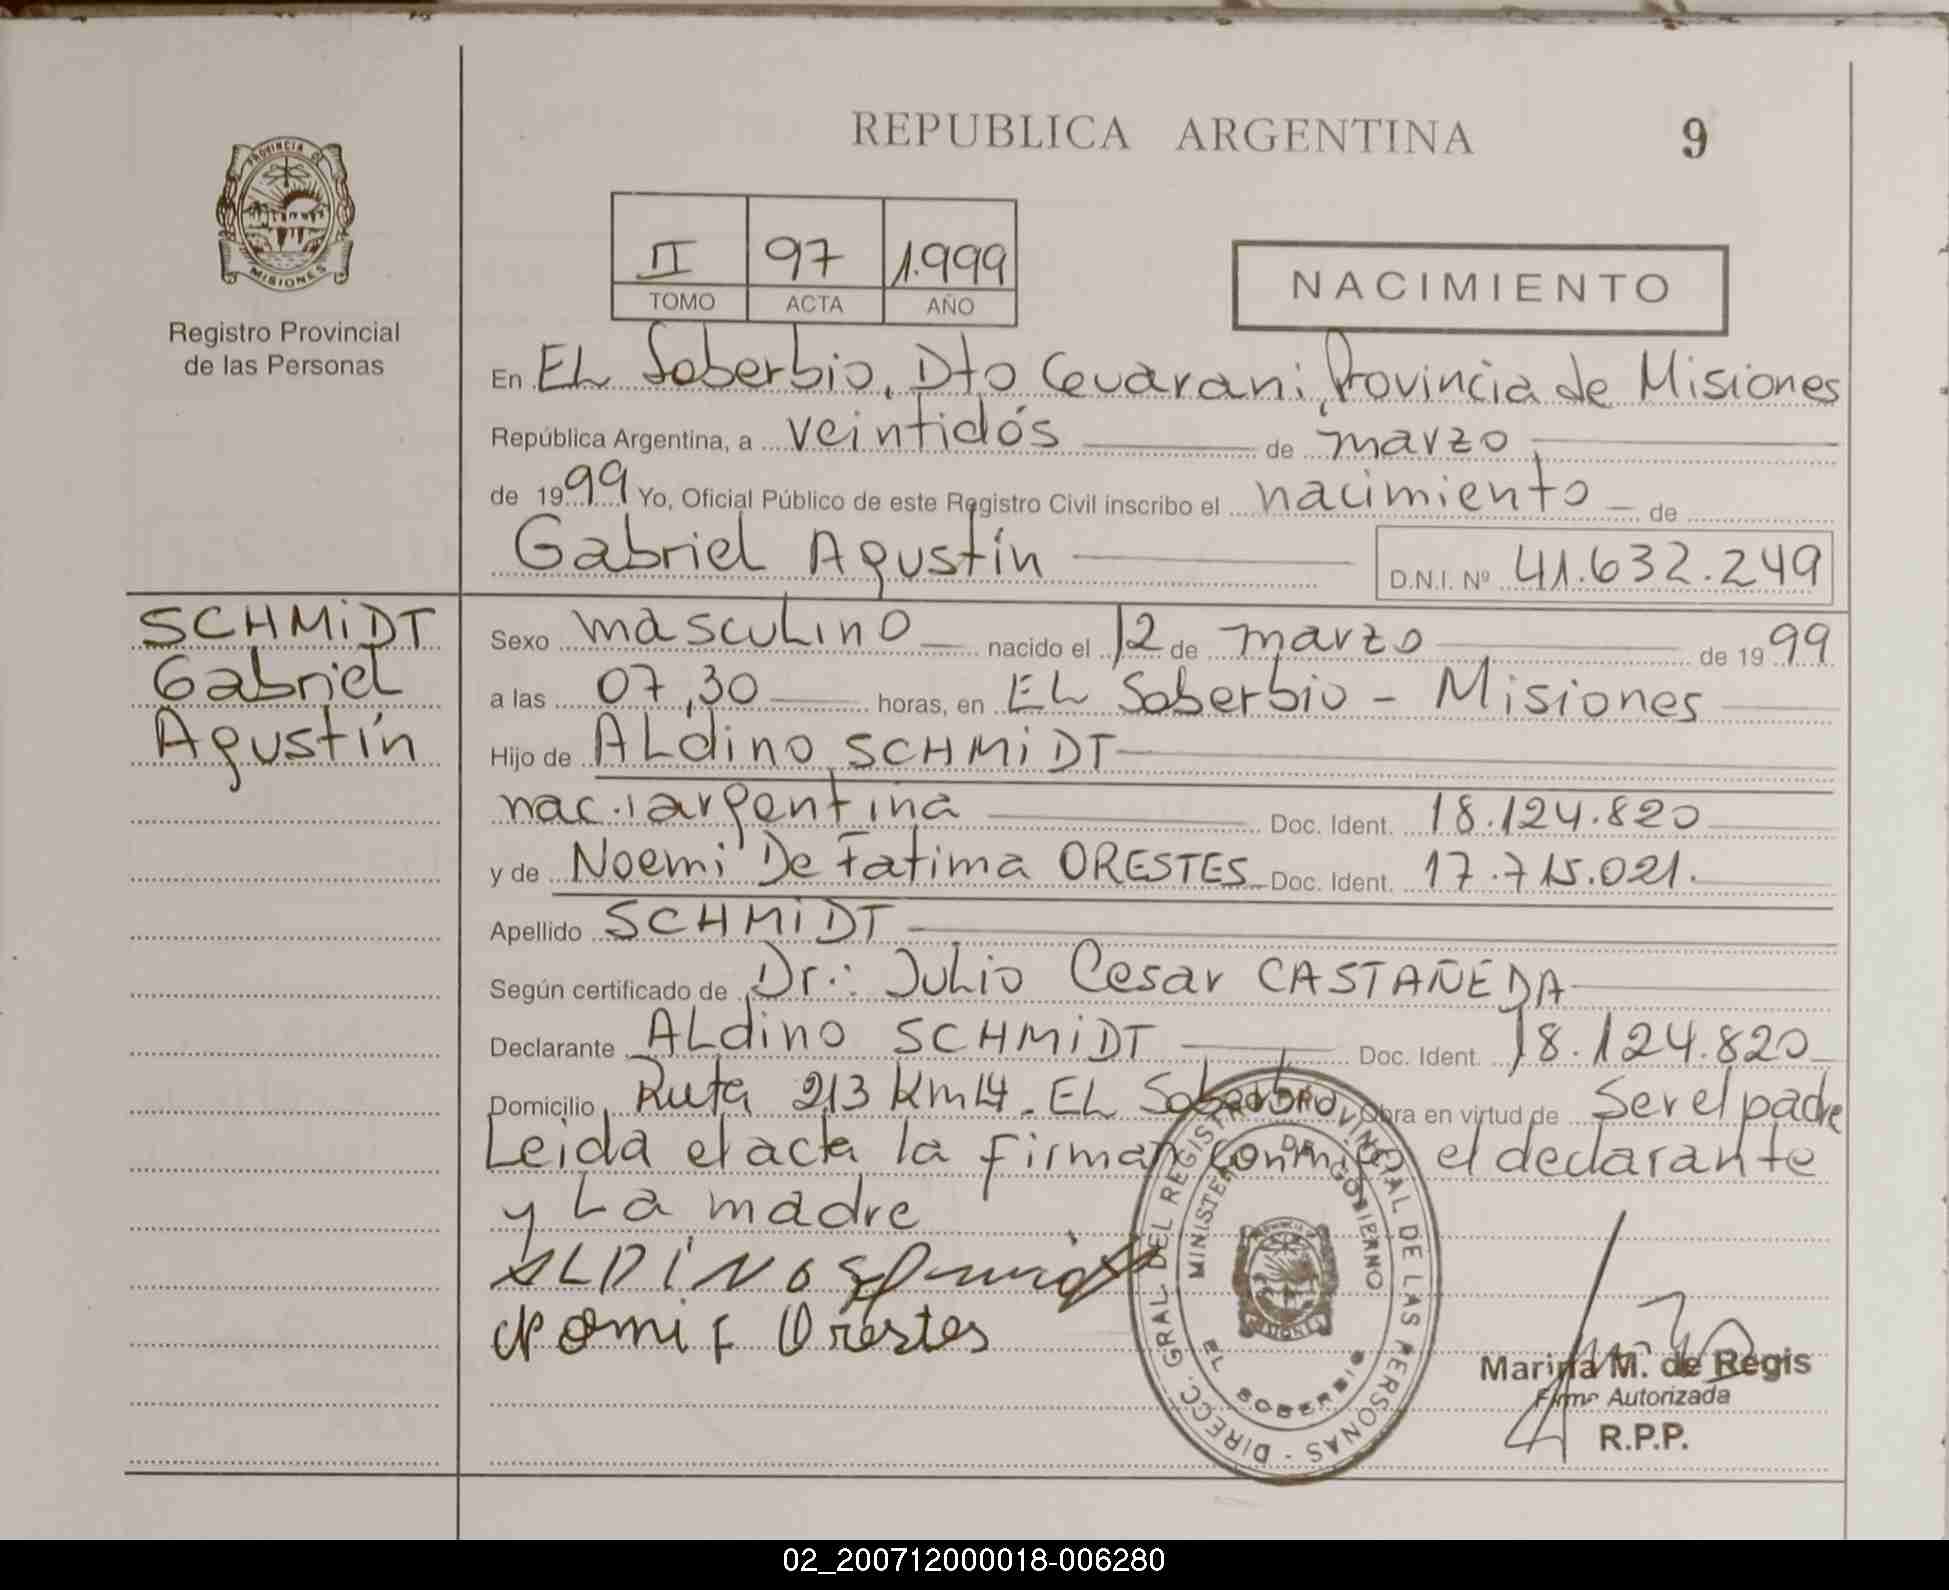 REPUBLICA ARGENTINA
9
PROVINCIA DE
MISIONES
Registro Provincial
de las Personas
II 97 1.999
TOMO ACTA AÑO
NACIMIENTO
En EL Soberbio, Dto Guarani, Provincia de Misiones
República Argentina, a veintidós de marzo
de 1999 Yo, Oficial Público de este Registro Civil inscribo el nacimiento de
Gabriel Agustín
D.N.I. Nº 41.632.249
SCHMIDT
Gabriel
Agustín
Sexo masculino nacido el 12 de marzo de 1999
a las 07,30 horas, en EL Soberbio - Misiones
Hijo de ALdino SCHMIDT
nac. argentina Doc. Ident. 18.124.820
y de Noemi De Fatima ORESTES Doc. Ident. 17.715.021.
Apellido SCHMIDT
Según certificado de Dr.: Julio Cesar CASTAÑEDA
Declarante ALdino SCHMIDT Doc. Ident. 18.124.820
Domicilio Ruta 213 Km 14. EL Soberbio Obra en virtud de Ser el padre
Leida el acta la firman conmigo el declarante
y La madre
ALDINO
Noemi F Orestes
DIRECC. GRAL. DEL REGISTRO PROVINCIAL DE LAS PERSONAS -
MINISTERIO DE GOBIERNO
MISIONES
EL SOBERBIO
Marina M. de Regis
Firma Autorizada
R.P.P.
02_200712000018-006280